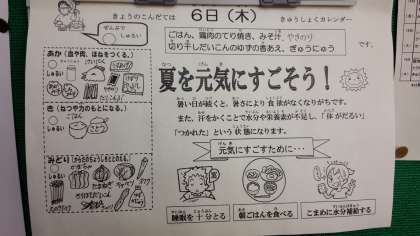 きょうのこんだては 6日(木) きゅうしょくカレンダー
ごはん、鶏肉のてり焼き、みそ汁、やきのり
切り干しだいこんのゆずの香あえ、ぎゅうにゅう
です。
ぜんぶで
しゅるい
あか(血や肉、ほねをつくる。)
しゅるい
き(ねつや力のもとになる。)
しゅるい
ごはん
さとう
みどり(からだのちょうしをととのえる。)
しゅるい
たまねぎ
夏を元気にすごそう!
暑い日が続くと、暑さにより食欲がなくなりがちです。
また、汗をかくことで水分や栄養素が不足し、「体がだるい」
「つかれた」という状態になります。
元気にすごすために・・・
睡眠を十分とる
朝ごはんを食べる
こまめに水分補給する